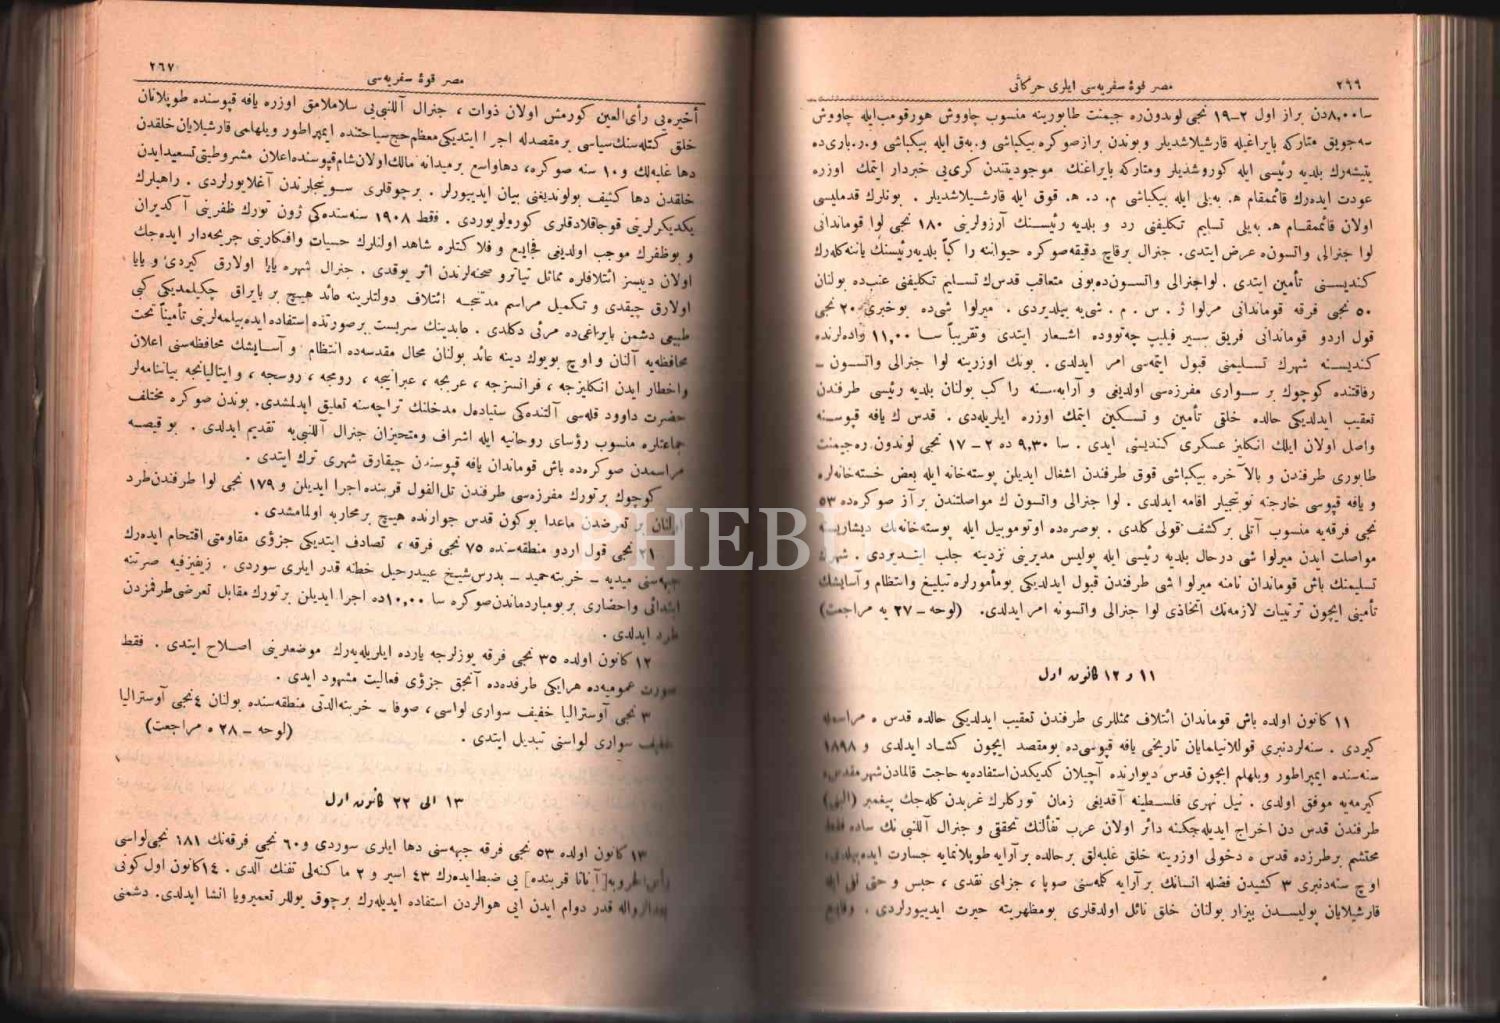 ٢٦٦ مصر قوۀ سفریه‌سی ایلری حرکاتی
سا ٨,٠٠دن براز اول ٢ـ١٩ نجی لوندون‌ره جیمنت طابورینه منسوب چاووش هورقومب‌ایله چاووش
سه‌جویق متارکه بایراغیله قارشیلاشدیلر و بوندن برازصوکره بیکباشی و.به‌ق ایله بیکباشی و.ره.باری‌ده
یتیشه‌رك بلدیه رئیسی ایله کوروشدیلر ومتارکه بایراغنك موجودیتندن کری‌یی خبردار ایتمك اوزره
عودت ایده‌رك قائممقام ه. به‌یلی ایله بیکباشی م. د. ه. قوق ایله قارشیلاشدیلر . بونلرك قدملیسی
اولان قائممقام ه. به‌یلی تسلیم تکلیفنی رد و بلدیه رئیسنك آرزولرینی ١٨٠ نجی لوا قوماندانی
لوا جنرالی واتسون‌ه عرض ایتدی. جنرال برقاچ دقیقه‌صوکره حیواننه را کباً بلدیه‌رئیسنك یاننه‌کله‌رك
کندیسنی تأمین ایتدی . لواجنرالی واتسون‌ده‌بونی متعاقب قدس‌ك تسلیم تکلیفنی عنب‌ده بولنان
٥٠ نجی فرقه قوماندانی مرلوا ژ . س . م . شی‌یه بیلدیردی . میرلوا شی‌ده بوخبری ٢٠ نجی
قول اردو قوماندانی فریق سیر فیلیپ چه‌توود‌ه اشعار ایتدی وتقریباً سا ١١,٠٠ راده‌لرنده
کندیسنه شهرك تسلیمنی قبول ایتمه‌سی امر ایدلدی . بونك اوزرینه لوا جنرالی واتسون ـ
رفاقتنده کوچوك بر سواری مفرزه‌سی اولدیغی و آرابه‌سنه را کب بولنان بلدیه رئیسی طرفندن
تعقیب ایدلدیکی حالده خلقی تأمین و تسکین ایتمك اوزره ایلریله‌دی . قدس ك یافه قپوسنه
واصل اولان ایلك انکلیز عسکری کندیسی ایدی . سا ٩,٣٠ ده ٢ ـ ١٧ نجی لوندون ره‌جیمنت
طابوری طرفندن و بالآ خره بیکباشی قوق طرفندن اشغال ایدیلن پوسته‌خانه ایله بعض خسته‌خانه‌لره
و یافه قپوسی خارجنه نوبتجیلر اقامه ایدلدی . لوا جنرالی واتسون ك مواصلتندن برآز صوکره‌ده ٥٣
نجی فرقه‌یه منسوب آتلی برکشف قولی کلدی . بوصره‌ده اوتوموبیل ایله پوسته‌خانه‌نك دیشاریسنه
مواصلت ایدن میرلوا شی درحال بلدیه رئیسی ایله پولیس مدیرینی نزدینه جلب ایتدیردی . شهرك
تسلیمنك باش قوماندان نامنه میرلوا شی طرفندن قبول ایدلدیکی بومأمورلره تبلیغ وانتظام و آسایشك
تأمینی ایچون ترتیبات لازمه‌نك اتخاذی لوا جنرالی واتسونه امر ایدلدی. (لوحه ـ ٢٧ یه مراجعت)
١١ و ١٢ کانون اول
١١ کانون اولده باش قوماندان ائتلاف ممثللری طرفندن تعقیب ایدلدیکی حالده قدس ه مراسمله
کیردی . سنه‌لردنبری قوللانیلمایان تاریخی یافه قپوسی‌ده بومقصد ایچون کشاد ایدلدی و ١٨٩٨
سنه‌سنده ایمپراطور ویلهلم ایچون قدس دیوارنده آچیلان کدیکدن استفاده‌یه حاجت قالمادن‌شهر مقدسه
کیرمه‌یه موفق اولدی . نیل نهری فلسطینه آقدیغی زمان تورکلرك غربدن کله‌جك پیغمبر (النبی)
طرفندن قدس دن اخراج ایدیله‌جکنه دائر اولان عرب تفألنك تحققی و جنرال آللنبی نك ساده فقط
محتشم برطرزده قدس ه دخولی اوزرینه خلق غلبه‌لق برحالده بر‌آرایه طوپلانمایه جسارت ایده‌بیلدی.
اوچ سنه‌دنبری ٣ کشیدن فضله انسانك بر‌آرایه کلمه‌سنی صوپا ، جزای نقدی ، حبس و حتی نفی ایله
قارشیلایان پولیسدن بیزار بولنان خلق نائل اولدقلری بومظهریته حیرت ایدییورلردی . وقایع
مصر قوۀ سفریه‌سی ٢٦٧
أخیره‌یی رأی‌العین کورمش اولان ذوات ، جنرال آللنبی‌یی سلاملامق اوزره یافه قپوسنده طوپلانان
خلق کتله‌سنك سیاسی برمقصدله اجرا ایتدیکی معظم حج سیاحتنده ایمپراطور ویلهلمی قارشیلایان خلقدن
دها غلبه‌لك و ١٠ سنه صوکره، دهاواسع بر‌میدانه مالك‌اولان‌شام‌قپوسنده‌اعلان مشروطیتی تسعید‌ایدن
خلقدن دها کثیف بولوندیغنی بیان ایدییورلر . برچوقلری سوینجلرندن آغلایورلردی . راهبلرك
یکدیکرلرینی قوجاقلادقلری کورولویوردی . فقط ١٩٠٨ سنه‌سنده‌کی ژون تورك ظفرینی آ کدیران
و بوظفرك موجب اولدیغی فجایع و فلا کتلره شاهد اولنلرك حسیات وافکارینی جریحه‌دار ایده‌جك
اولان دیبسز ائتلافلره مماثل تیاترو صحنه‌لرندن اثر یوقدی . جنرال شهره یایا اولارق کیردی و یایا
اولارق چیقدی و تکمیل مراسم مدتنجه ائتلاف دولتلرینه عائد هیچ بر بایراق چکیلمدیکی کبی
طبیعی دشمن بایراغی‌ده مرئی دکلدی . عابدینك سربست برصورتده استفاده ایده‌بیلمه‌لرینی تأمیناً تحت
محافظه‌یه آلنان و اوچ بویوك دینه عائد بولنان محال مقدسه‌ده انتظام و آسایشك محافظه‌سنی اعلان
واخطار ایدن انکلیزجه ، فرانسزجه ، عربجه ، عبرانیجه ، رومجه ، روسجه ، و ایتالیانجه بیاننامه‌لر
حضرت داوود قله‌سی آلتنده‌کی ستیاده‌ل مدخلنك تراچه‌سنه تعلیق ایدلمشدی. بوندن صوکره مختلف
جماعتلره منسوب رؤسای روحانیه ایله اشراف ومتحیزان جنرال آللنبی‌یه تقدیم ایدلدی . بو قیصه
مراسمدن صوکره‌ده باش قوماندان یافه قپوسندن چیقارق شهری ترك ایتدی .
کوچوك برتورك مفرزه‌سی طرفندن تل‌الفول قربنده اجرا ایدیلن و ١٧٩ نجی لوا طرفندن‌طرد
اولنان بر تعرضدن ماعدا بوکون قدس جوارنده هیچ بر محاربه اولمامشدی .
٢١ نجی قول اردو منطقه‌سنده ٧٥ نجی فرقه ، تصادف ایتدیکی جزؤی مقاومتی اقتحام ایده‌رك
جبهه‌سنی میدیه ـ خربته‌حمید ـ بدرس‌شیخ عبیدرحیل خطنه قدر ایلری سوردی . زیفیزفیه صرتنه
ابتدائی واحضاری بربومباردماندن‌صوکره سا ١٠,٠٠ده اجرا ایدیلن برتورك مقابل تعرضی‌طرفمزدن
طرد ایدلدی .
١٢ کانون اولده ٣٥ نجی فرقه یوزلرجه یارده ایلریله‌یه‌رك موضعلرینی اصلاح ایتدی . فقط
صورت عمومیه‌ده هرایکی طرفده‌ده آنجق جزؤی فعالیت مشهود ایدی .
٣ نجی آوسترالیا خفیف سواری لواسی، صوفا ـ خربته‌الدنی منطقه‌سنده بولنان ٤نجی آوسترالیا
خفیف سواری لواسنی تبدیل ایتدی . (لوحه ـ ٢٨ ه مراجعت)
١٣ الی ٢٢ کانون اول
١٣ کانون اولده ٥٣ نجی فرقه جبهه‌سنی دها ایلری سوردی و ٦٠ نجی فرقه‌نك ١٨١ نجی‌لواسی
رأس‌الخروبه[آناتا قربنده] یی ضبط‌ایده‌رك ٤٣ اسیر و ٢ ما کنه‌لی تفنك آلدی . ١٤کانون اول کونی
بعدالزواله قدر دوام ایدن ایی هوالردن استفاده ایدیله‌رك برچوق یوللر تعمیرویا انشا ایدلدی. دشمنی
PHEBUS